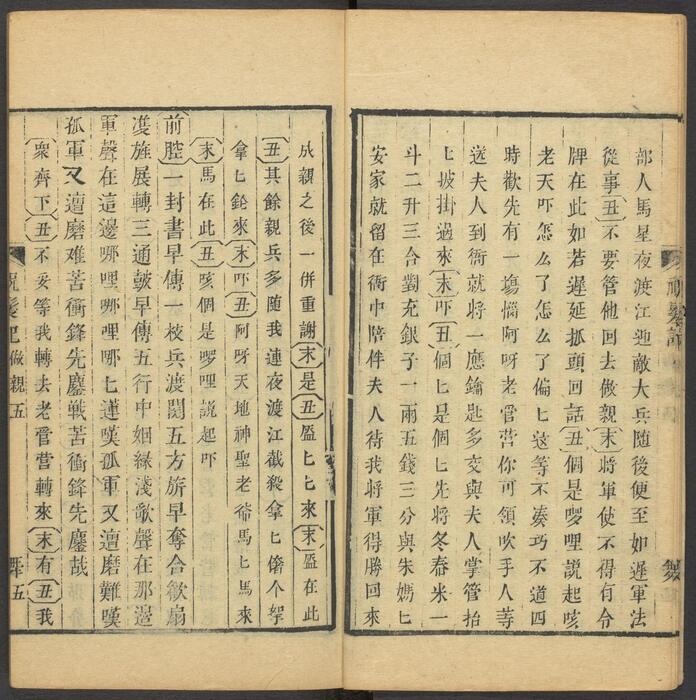 部人馬星夜渡江迎敵大兵随後便至如遲軍法
從事丑不要管他回去做親末將軍使不得有令
牌在此如若遲延抓頭回話丑個是啰哩説起咳
老天吓怎么了怎么了偏匕这等不凑巧不道四
時歡先有一塲惱阿呀老管营你可領吹手人等
送夫人到衙就將一應鑰匙多交與夫人掌管抬
匕披掛過來末吓丑個匕是個匕先將冬舂米一
斗二升三合對充銀子一兩五錢三分與朱媽匕
安家就留在衙中陪伴夫人待我將軍得勝回來
成親之後一併重謝末是丑盔匕匕來末盔在此
丑其餘親兵多随我連夜渡江截殺拿匕俻个拏
拿匕鎗來末吓丑阿呀天地神聖老爺馬匕馬來
末馬在此丑咳個是啰哩説起吓
前腔一封書早傳一枝兵渡関五方旂早奪合歡扇
旌展轉三通皷早傳五行中姻緣淺歒聲在那邉
軍聲在這邊哪哩哪哩哪匕蓮嘆孤軍又遭磨難嘆
孤軍又遭磨难苦衝鋒先鏖戦苦衝鋒先鏖哉
衆齊下丑不妥等我轉去老管营轉來末有丑我
祝髮記 做親 五